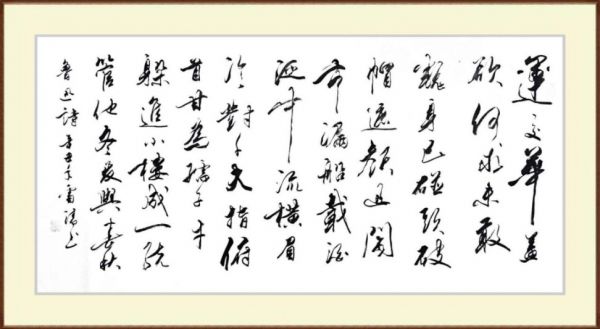 運交華蓋
欲何求未敢
翻身已碰頭破
帽遮顏過鬧
市漏船載酒
泛中流橫眉
冷對千夫指俯
首甘為孺子牛
躲進小樓成一統
管他冬夏與春秋
魯迅詩 辛丑年